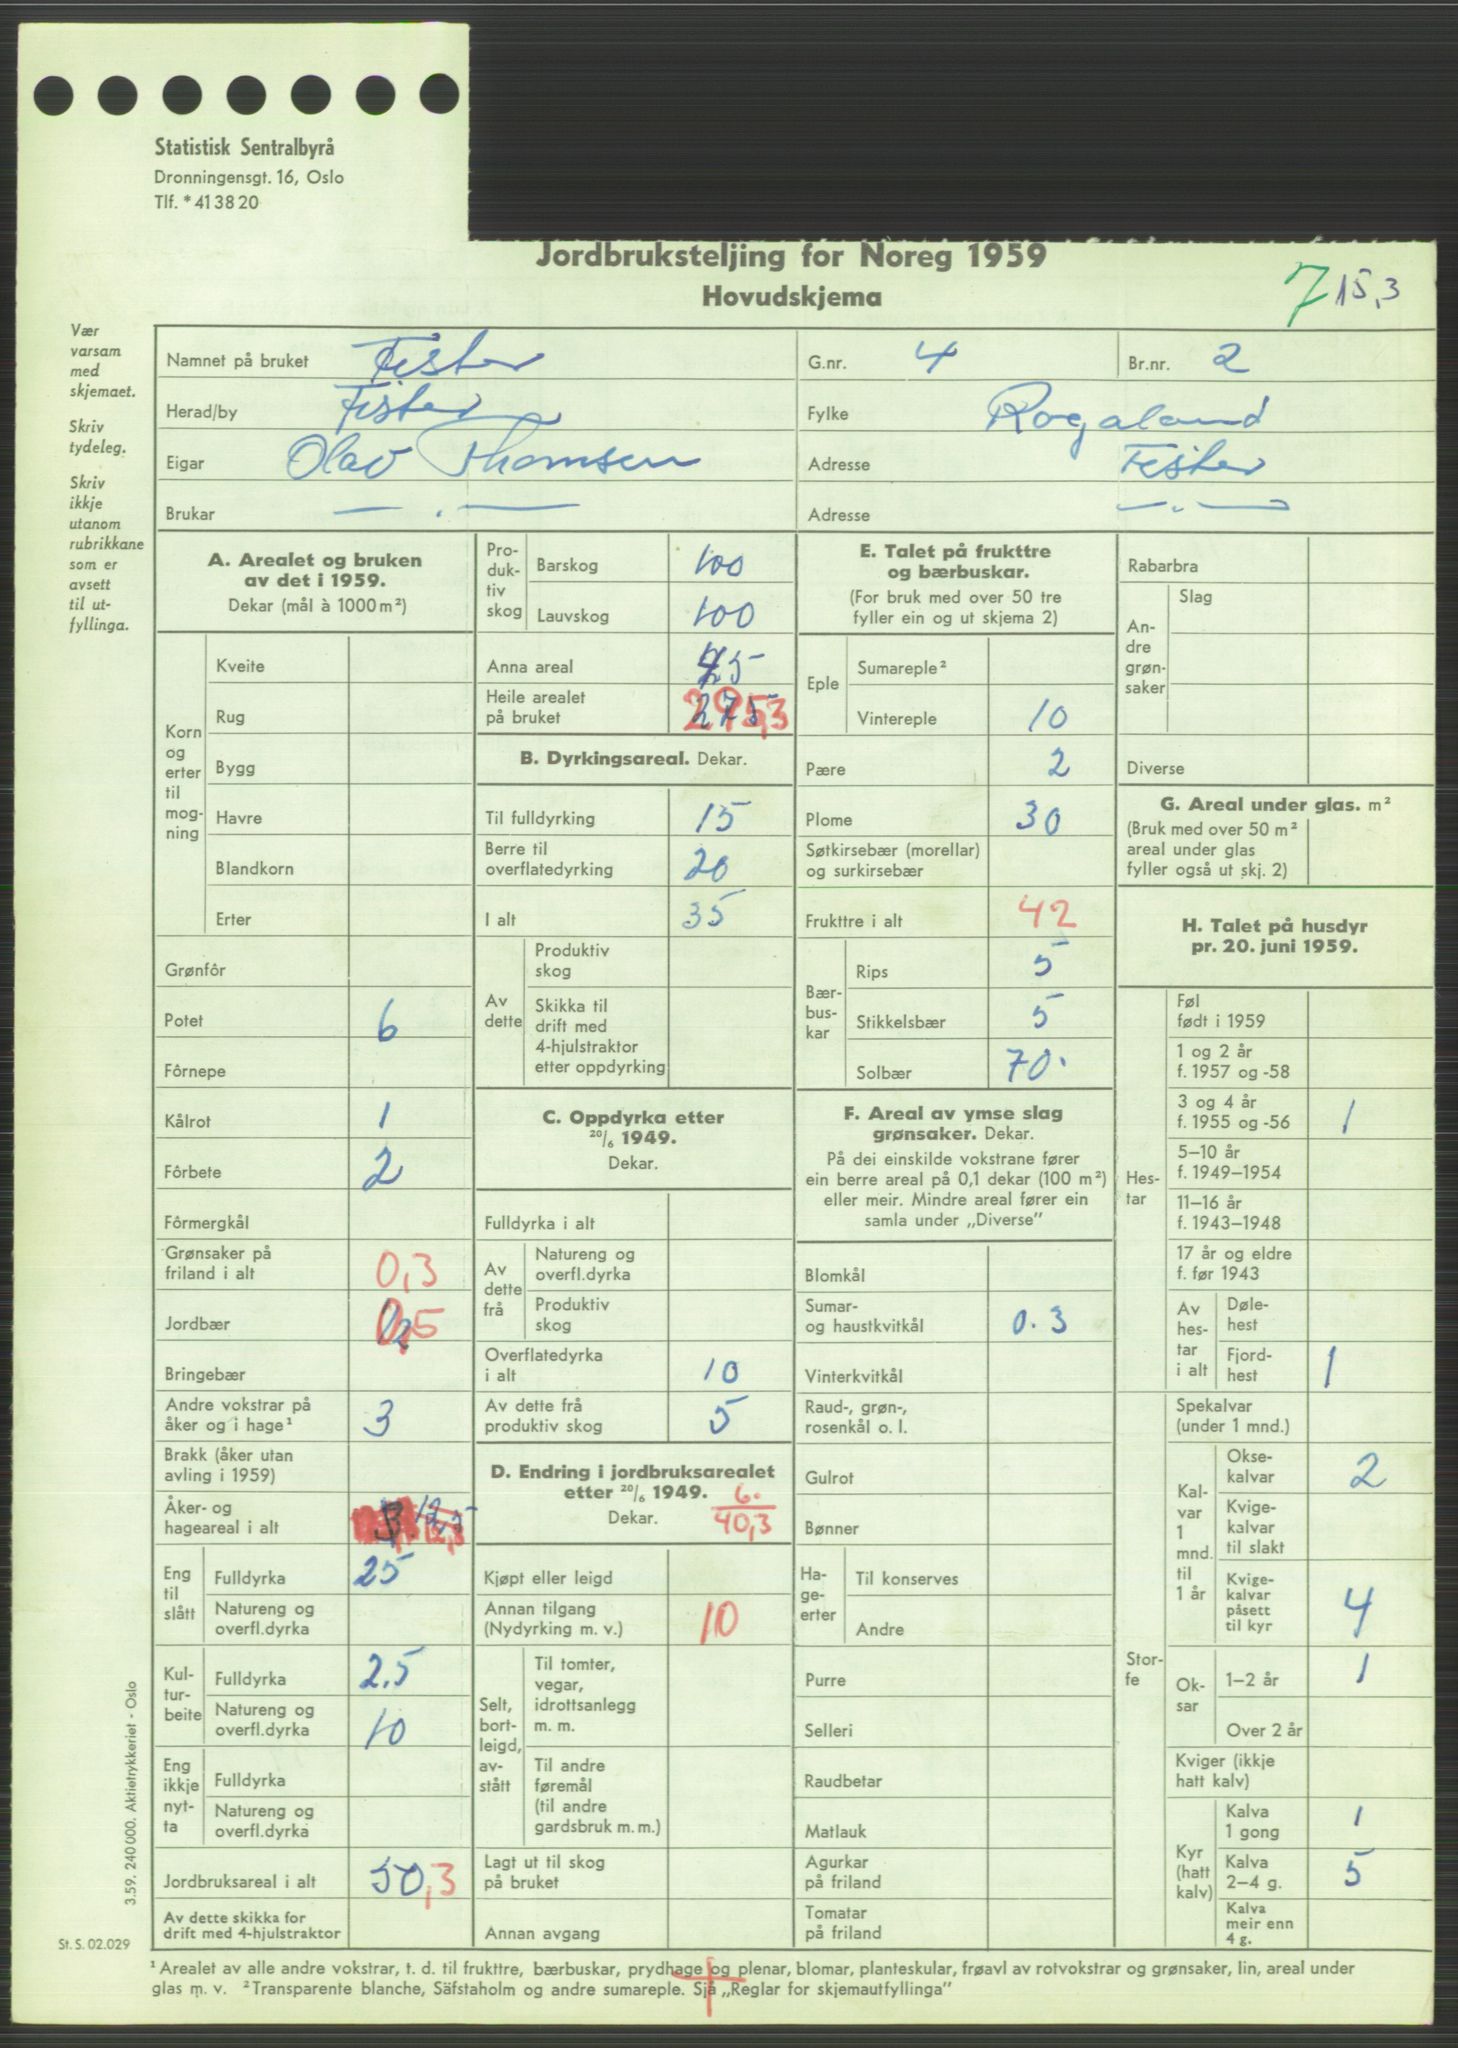 Statistisk Sentralbyrå
Dronningensgt. 16, Oslo
Tlf. * 41 38 20
Jordbruksteljing for Noreg 1959
Hovudskjema
7 15,3
Vær varsam med skjemaet.
Skriv tydeleg.
Skriv ikkje utanom rubrikkane som er avsett til ut-fyllinga.
Namnet på bruket Fister
G.nr. 4 Br.nr. 2
Herad/by Fister
Fylke Rogaland
Eigar Olav Thomsen
Adresse Fister
Brukar — . —
Adresse — . —
A. Arealet og bruken
av det i 1959.
Dekar (mål à 1000 m²)
Korn og erter til mog-ning
Kveite
Rug
Bygg
Havre
Blandkorn
Erter
Grønfôr
Potet 6
Fôrnepe
Kålrot 1
Fôrbete 2
Fôrmergkål
Grønsaker på
friland i alt 0,3
Jordbær 0,5
Bringebær
Andre vokstrar på
åker og i hage¹ 3
Brakk (åker utan
avling i 1959)
Åker- og
hageareal i alt
Eng til slått
Fulldyrka 25
Natureng og
overfl.dyrka
Kul-tur-beite
Fulldyrka 2,5
Natureng og
overfl.dyrka 10
Eng ikkje nyt-ta
Fulldyrka
Natureng og
overfl.dyrka
Jordbruksareal i alt 50,3
Av dette skikka for
drift med 4-hjulstraktor
Pro-duk-tiv skog
Barskog 100
Lauvskog 100
Anna areal 45
Heile arealet
på bruket 295,3
B. Dyrkingsareal. Dekar.
Til fulldyrking 15
Berre til
overflatedyrking 20
I alt 35
Av dette
Produktiv
skog
Skikka til
drift med
4-hjulstraktor
etter oppdyrking
C. Oppdyrka etter
20/6 1949.
Dekar.
Fulldyrka i alt
Av dette frå
Natureng og
overfl.dyrka
Produktiv
skog
Overflatedyrka
i alt 10
Av dette frå
produktiv skog 5
D. Endring i jordbruksarealet
etter 20/6 1949.
Dekar.
6.
40,3
Kjøpt eller leigd
Annan tilgang
(Nydyrking m. v.) 10
Selt, bort-leigd, av-stått
Til tomter,
vegar,
idrottsanlegg
m. m.
Til andre
føremål
(til andre
gardsbruk m. m.)
Lagt ut til skog
på bruket
Annan avgang
E. Talet på frukttre
og bærbuskar.
(For bruk med over 50 tre
fyller ein og ut skjema 2)
Eple
Sumareple²
Vintereple 10
Pære 2
Plome 30
Søtkirsebær (morellar)
og surkirsebær
Frukttre i alt 42
Bær-bus-kar
Rips 5
Stikkelsbær 5
Solbær 70.
F. Areal av ymse slag
grønsaker. Dekar.
På dei einskilde vokstrane fører
ein berre areal på 0,1 dekar (100 m²)
eller meir. Mindre areal fører ein
samla under „Diverse”
Blomkål
Sumar-
og haustkvitkål 0.3
Vinterkvitkål
Raud-, grøn-,
rosenkål o. l.
Gulrot
Bønner
Ha-ge-erter
Til konserves
Andre
Purre
Selleri
Raudbetar
Matlauk
Agurkar
på friland
Tomatar
på friland
Rabarbra
An-dre grøn-saker
Slag
Diverse
G. Areal under glas. m²
(Bruk med over 50 m²
areal under glas
fyller også ut skj. 2)
H. Talet på husdyr
pr. 20. juni 1959.
Hes-tar
Føl
født i 1959
1 og 2 år
f. 1957 og -58
3 og 4 år
f. 1955 og -56 1
5–10 år
f. 1949–1954
11–16 år
f. 1943–1948
17 år og eldre
f. før 1943
Av hes-tar i alt
Døle-
hest
Fjord-
hest 1
Stor-fe
Spekalvar
(under 1 mnd.)
Kal-var 1 mnd. til 1 år
Okse-
kalvar 2
Kvige-
kalvar
til slakt
Kvige-
kalvar
påsett
til kyr 4
Ok-sar
1–2 år 1
Over 2 år
Kviger (ikkje
hatt kalv)
Kyr (hatt kalv)
Kalva
1 gong 1
Kalva
2–4 g. 5
Kalva
meir enn
4 g.
3.59. 240 000. Aktietrykkeriet - Oslo
St. S. 02.029
¹ Arealet av alle andre vokstrar, t. d. til frukttre, bærbuskar, prydhage og plenar, blomar, planteskular, frøavl av rotvokstrar og grønsaker, lin, areal under
glas m. v. ² Transparente blanche, Säfstaholm og andre sumareple. Sjå „Reglar for skjemautfyllinga”